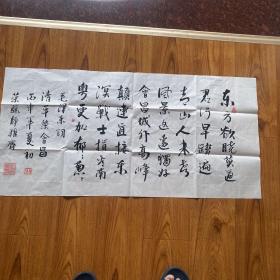 东方欲晓莫道
君行早踏遍
青山人未老
風景这边獨好
會昌城外高峰
颠連直接东
溟戰士指看南
粤更加郁〻葱〻
毛泽东詞
清平樂會昌
丙申年夏初